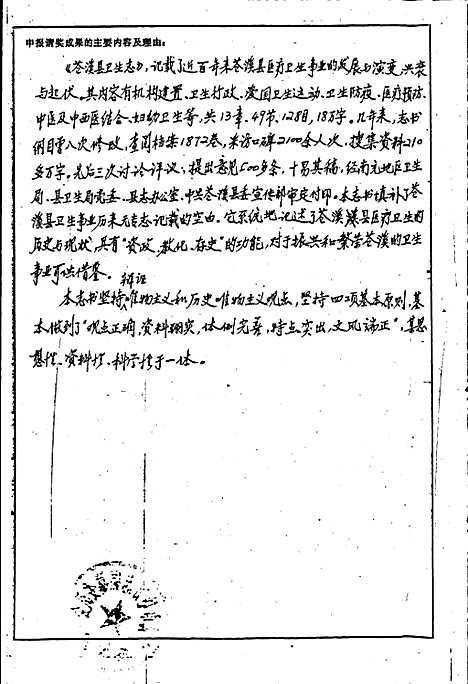 申报请奖成果的主要内容及理由:
《苍溪县卫生志》,记载了近百年来苍溪县医疗卫生事业的发展与演变,兴衰
与起伏。其内容有机构建置、卫生行政、爱国卫生运动、卫生防疫、医疗预防、
中医及中西医结合、妇幼卫生等,共13章、49节、128目,18万字。几年来,志书
纲目曾八次修改,查阅档案1872卷,采访口碑2100余人次,搜集资料210
多万字。先后三次讨论评议,提出意见500多条,十易其稿,经南充地区卫生
局、县卫生局党委、县志办公室、中共苍溪县委宣传部审定付印。本志书填补了苍
溪县卫生事业历来无专志记载的空白。它系统地记述了苍溪县医疗卫生的
历史与现状,具有“资政、教化、存史”的功能,对于振兴和繁荣苍溪的卫生
事业可供借鉴。
辩证
本志书坚持唯物主义和历史唯物主义观点,坚持四项基本原则,基
本做到了“观点正确,资料翔实,体例完善,特点突出,文风端正”,集思
想性、资料性、科学性于一体。